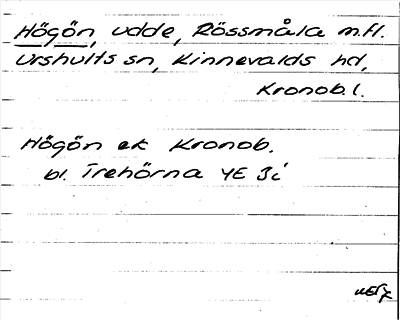 Högön, udde, Rössmåla m.fl.
Urshults sn, Kinnevalds hd,
Kronob. l.
Högön ek Kronob.
bl. Trehörna 4E 3i